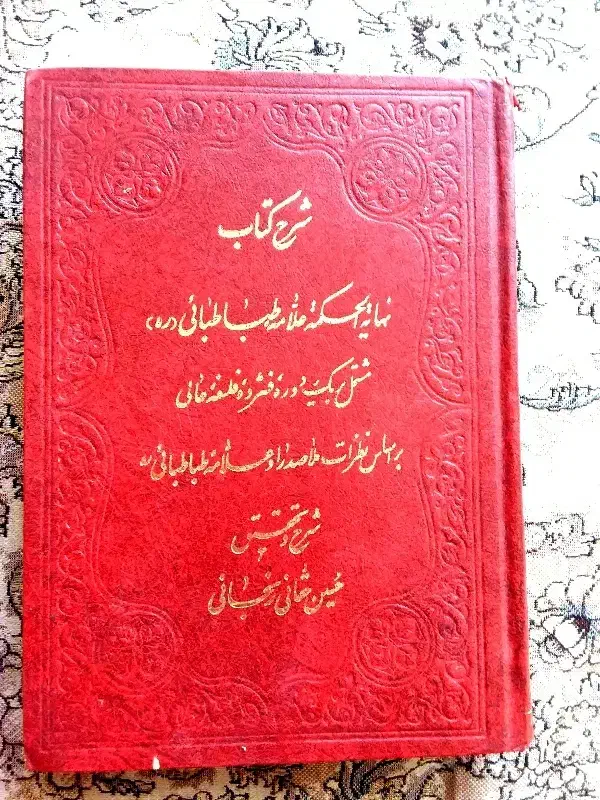 شرح کتاب
نهایة الحکمة علامه طباطبائی (ره)
مشتمل بر یک دوره فشرده فلسفه عالی
بر اساس نظرات ملاصدرا و علامه طباطبائی ره
شرح و تحقیق
حسین حقانی زنجانی